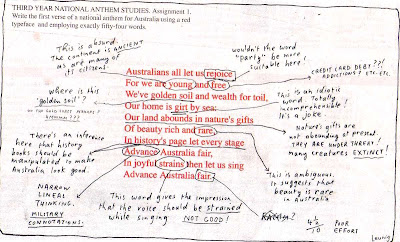 THIRD YEAR NATIONAL ANTHEM STUDIES. Assignment 1.
Write the first verse of a national anthem for Australia using a red
typeface and employing exactly fifty-four words.
This is absurd.
The continent is ANCIENT
as are many of
its citizens.
wouldn't the word
"party" be more
suitable here!
Australians all let us rejoice
For we are young and free
We've golden soil and wealth for toil,
Our home is girt by sea:
Our land abounds in nature's gifts
Of beauty rich and rare,
In history's page let every stage
Advance Australia fair,
In joyful strains then let us sing
Advance Australia fair.
CREDIT CARD DEBT??
ADDICTIONS? ETC. ETC.
where is this
"golden soil"?
This is an idiotic
word. Totally
incomprehensible!
It's a joke.
Nature's gifts are
not abounding at present.
THEY ARE UNDER THREAT!
many creatures EXTINCT!
There's an inference
here that history
books should be
manipulated to make
Australia look good.
This is ambiguous.
It suggests that
beauty is rare
in Australia
NARROW
LINEAL
THINKING.
MILITARY
CONNOTATIONS.
This word gives the impression
that the voice should be strained
while singing NOT GOOD!
4½
10
POOR
EFFORT
Leunig